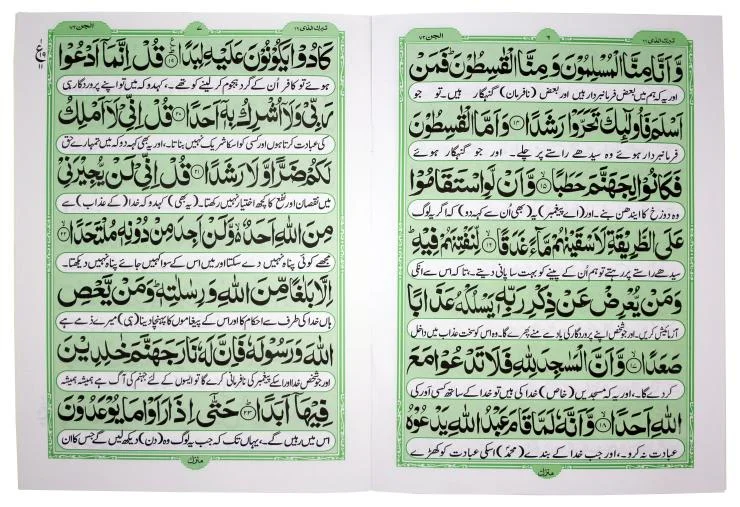 تبرك الذى ٢٩
٦
الجن ٧٢
وَّاَنَّا مِنَّا الْمُسْلِمُوْنَ وَمِنَّا الْقٰسِطُوْنَ ؕ فَمَنْ
اور یہ کہ ہم میں بعض فرمانبردار ہیں اور بعض (نافرمان) گنہگار ہیں۔ تو جو
اَسْلَمَ فَاُولٰٓئِكَ تَحَرَّوْا رَشَدًا ﴿١٤﴾ وَاَمَّا الْقٰسِطُوْنَ
فرمانبردار ہوئے وہ سیدھے راستے پر چلے۔ اور جو گنہگار ہوئے
فَكَانُوْا لِجَهَنَّمَ حَطَبًا ﴿١٥﴾ وَّاَنْ لَّوِ اسْتَقَامُوْا
وہ دوزخ کا ایندھن بنے۔ اور (اے پیغمبر) یہ (بھی اُن سے کہہ دو) کہ اگر یہ لوگ
عَلَى الطَّرِيْقَةِ لَاَسْقَيْنٰهُمْ مَّآءً غَدَقًا ﴿١٦﴾ لِّنَفْتِنَهُمْ فِيْهِ ؕ
سیدھے راستے پر رہتے تو ہم اُن کے پینے کو بہت سا پانی دیتے۔ تاکہ اس سے انکی
وَمَنْ يُّعْرِضْ عَنْ ذِكْرِ رَبِّهٖ يَسْلُكْهُ عَذَابًا
آزمائیش کریں۔ اور جو شخص اپنے پروردگار کی یاد سے منہ پھرے گا۔ وہ اس کو سخت عذاب میں داخل
صَعَدًا ﴿١٧﴾ وَّاَنَّ الْمَسٰجِدَ لِلّٰهِ فَلَا تَدْعُوْا مَعَ
کردے گا۔، اور یہ کہ مسجدیں (خاص) خدا کی ہیں تو خدا کے ساتھ کسی اور کی
اللّٰهِ اَحَدًا ﴿١٨﴾ وَّاَنَّهٗ لَمَّا قَامَ عَبْدُ اللّٰهِ يَدْعُوْهُ
عبادت نہ کرو۔، اور جب خدا کے بندے (محمدؐ) اسکی عبادت کو کھڑے
منزل
تبرك الذى ٢٩
٧
الجن ٧٢
كَادُوْا يَكُوْنُوْنَ عَلَيْهِ لِبَدًا ﴿١٩﴾ قُلْ اِنَّمَاۤ اَدْعُوْا
ہوئے تو کافر اُن کے گرد ہجوم کر لینے کو تھے۔، کہہ دو کہ میں تو اپنے پروردگار ہی
رَبِّيْ وَلَاۤ اُشْرِكُ بِهٖۤ اَحَدًا ﴿٢٠﴾ قُلْ اِنِّيْ لَاۤ اَمْلِكُ
کی عبادت کرتا ہوں اور کسی کو اسکا شریک نہیں بناتا۔، اور یہ بھی کہہ دو کہ میں تمہارے حق
لَكُمْ ضَرًّا وَّلَا رَشَدًا ﴿٢١﴾ قُلْ اِنِّيْ لَنْ يُّجِيْرَنِيْ
میں نقصان اور نفع کا کچھ اختیار نہیں رکھتا۔ (یہ بھی) کہہ دو کہ خدا (کے عذاب) سے
مِنَ اللّٰهِ اَحَدٌ ۙ وَّلَنْ اَجِدَ مِنْ دُوْنِهٖ مُلْتَحَدًا ﴿٢٢﴾
مجھے کوئی پناہ نہیں دے سکتا اور میں اس کے سوا کہیں جائے پناہ نہیں دیکھتا۔
اِلَّا بَلٰغًا مِّنَ اللّٰهِ وَرِسٰلٰتِهٖ ؕ وَمَنْ يَّعْصِ
ہاں خدا کی طرف سے احکام کا اور اس کے پیغاموں کا پہنچا دینا (ہی) میرے ذمے ہے
اللّٰهَ وَرَسُوْلَهٗ فَاِنَّ لَهٗ نَارَ جَهَنَّمَ خٰلِدِيْنَ
اور جو شخص خدا اور اسکے پیغمبر کی نافرمانی کرے گا تو ایسوں کے لئے جہنم کی آگ ہے ہمیشہ ہمیشہ
فِيْهَاۤ اَبَدًا ﴿٢٣﴾ حَتّٰۤى اِذَا رَاَوْا مَا يُوْعَدُوْنَ
اس میں رہیں گے۔، یہاں تک کہ جب یہ لوگ وہ (دن) دیکھ لیں گے جس کا ان
منزل